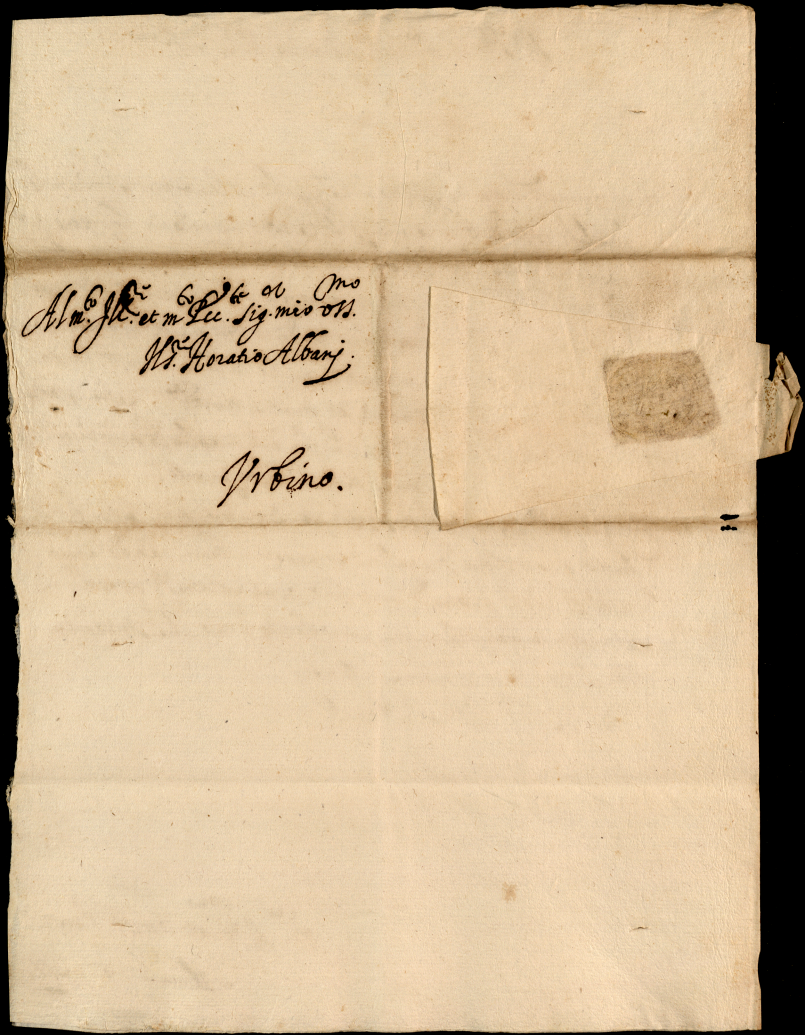 Al m.^to Ill.^re et m.^to Ecc.^te Sig.^or mio oss.^mo
Il S.^re Horatio Albanj.
Vrbino.